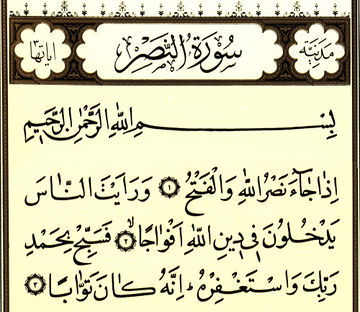 مدنية سورة النصر اياتها
بِسْمِ اللهِ الرَّحْمٰنِ الرَّحِيمِ
اِذَا جَٓاءَ نَصْرُ اللهِ وَالْفَتْحُ ۝١ وَرَاَيْتَ النَّاسَ
يَدْخُلُونَ فٖى دٖينِ اللهِ اَفْوَاجًاۙ ۝٢ فَسَبِّحْ بِحَمْدِ
رَبِّكَ وَاسْتَغْفِرْهُ ؕ اِنَّهُ كَانَ تَوَّابًا ۝٣